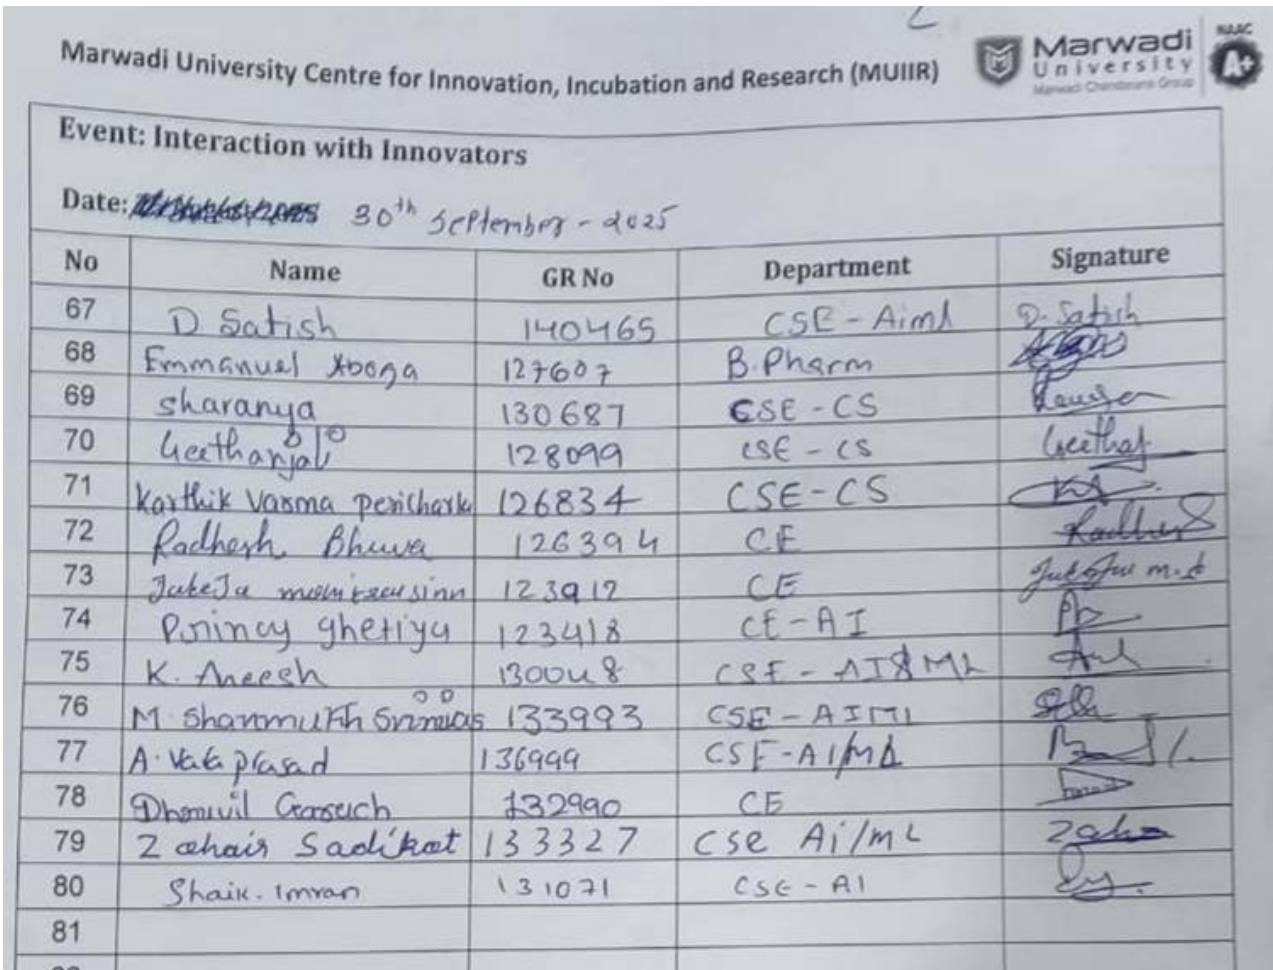 Marwadi University Centre for Innovation, Incubation and Research (MUIIR)
Marwadi
University
Marwadi Chandarana Group
NAAC
A+
Event: Interaction with Innovators
Date: 30th September - 2025
No Name GR No Department Signature
67 D Satish 140465 CSE - Aiml D. Satish
68 Emmanuel Aboga 127607 B. Pharm
69 Sharanya 130687 CSE - CS
70 Geethanjali 128099 CSE - CS Geethaj
71 Karthik Varma 126834 CSE - CS
72 Radhesh Bhuva 126394 CE Radhesh
73 123912 CE
74 Princy ghetiya 123418 CE - AI
75 K. Aneesh 130048 CSE - AI & ML
76 M. Shanmukh Srinivas 133993 CSE - AIML
77 A. Vara prasad 136999 CSE - AI/ML
78 132990 CE
79 Zahair Sadikot 133327 CSe Ai/mL
80 Shaik. Imran 131071 CSE - AI
81